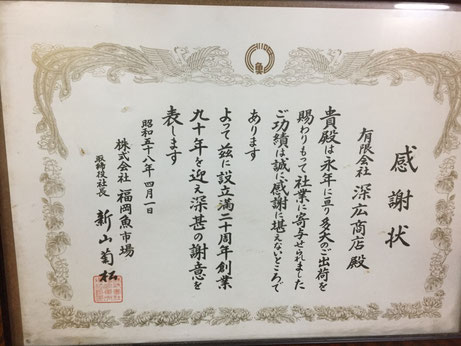 魚
感謝状
有限会社 深広商店 殿
貴殿は永年に亘り多大のご出荷を
賜わりもって社業に寄与せられました
ご功績は誠に感謝に堪えないところで
あります
よって茲に設立満二十周年創業
九十年を迎え深甚の謝意を
表します
昭和五十八年四月一日
株式会社 福岡魚市場
取締役社長 新山菊松